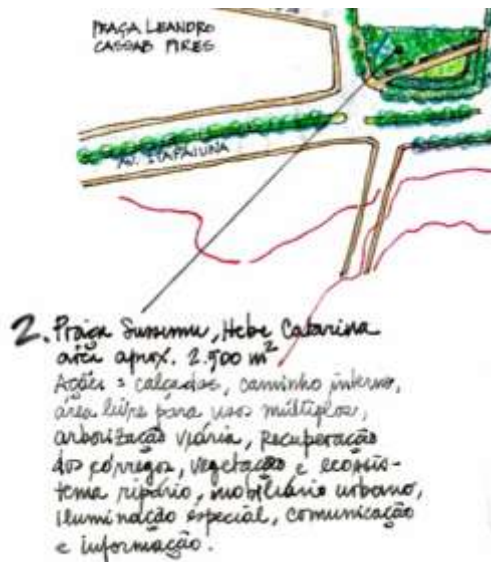 PRAÇA LEANDRO
CASSAB PIRES
AV. ITAPAIUNA
2. Praça Sussumu, Hebe Catarina
área aprox. 2.500 m²
Ações: calçadas, caminho interno,
área livre para usos múltiplos,
arborização viária, recuperação
dos córregos, vegetação e ecossis-
tema ripário, mobiliário urbano,
iluminação especial, comunicação
e informação.